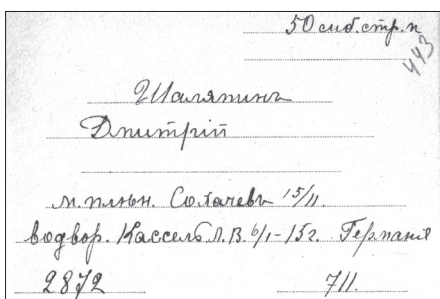 50 сиб.стр.п
443
Шаляпинъ
Дмитрій
м. плѣн. Сохачевъ 15/II.
водвор. Кассель Л.В. 6/I-15г. Германія
2872 711.